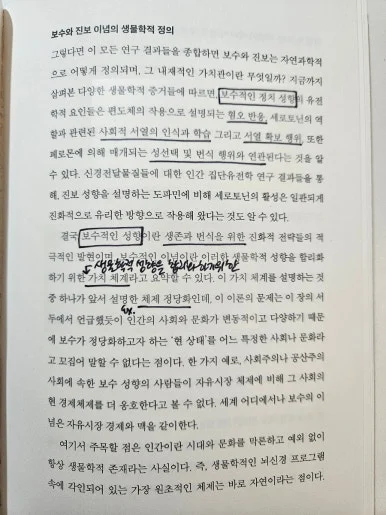 보수와 진보 이념의 생물학적 정의
그렇다면 이 모든 연구 결과들을 종합하면 보수와 진보는 자연과학적
으로 어떻게 정의되며, 그 내재적인 가치관이란 무엇일까? 지금까지
살펴본 다양한 생물학적 증거들에 따르면, 보수적인 정치 성향의 유전
학적 요인들은 편도체의 작용으로 설명되는 혐오 반응, 세로토닌의 역
할과 관련된 사회적 서열의 인식과 학습 그리고 서열 확보 행위, 또한
페로몬에 의해 매개되는 성선택 및 번식 행위와 연관된다는 것을 알
수 있다. 신경전달물질들에 대한 인간 집단유전학 연구 결과들을 통
해, 진보 성향을 설명하는 도파민에 비해 세로토닌의 활성은 일관되게
진화적으로 유리한 방향으로 작용해 왔다는 것도 알 수 있다.
결국 보수적인 성향이란 생존과 번식을 위한 진화적 전략들의 적
극적인 발현이며, 보수적인 이념이란 이러한 생물학적 성향을 합리화
생물학적 성향을 합리화하기 위한
하기 위한 가치 체계라고 요약할 수 있다. 이 가치 체계를 설명하는 것
중 하나가 앞서 설명한 체제 정당화인데, 이 이론의 문제는 이 장의 서
ex.
두에서 언급했듯이 인간의 사회와 문화가 변동적이고 다양하기 때문
에 보수가 정당화하고자 하는 '현 상태'를 어느 특정한 사회나 문화라
고 꼬집어 말할 수 없다는 점이다. 한 가지 예로, 사회주의나 공산주의
사회에 속한 보수 성향의 사람들이 자유시장 체제에 비해 그 사회의
현 경제체제를 더 옹호한다고 볼 수 없다. 세계 어디에서나 보수의 이
념은 자유시장 경제와 맥을 같이한다.
여기서 주목할 점은 인간이란 시대와 문화를 막론하고 예외 없이
항상 생물학적 존재라는 사실이다. 즉, 생물학적인 뇌신경 프로그램
속에 각인되어 있는 가장 원초적인 체제는 바로 자연이라는 점이다.